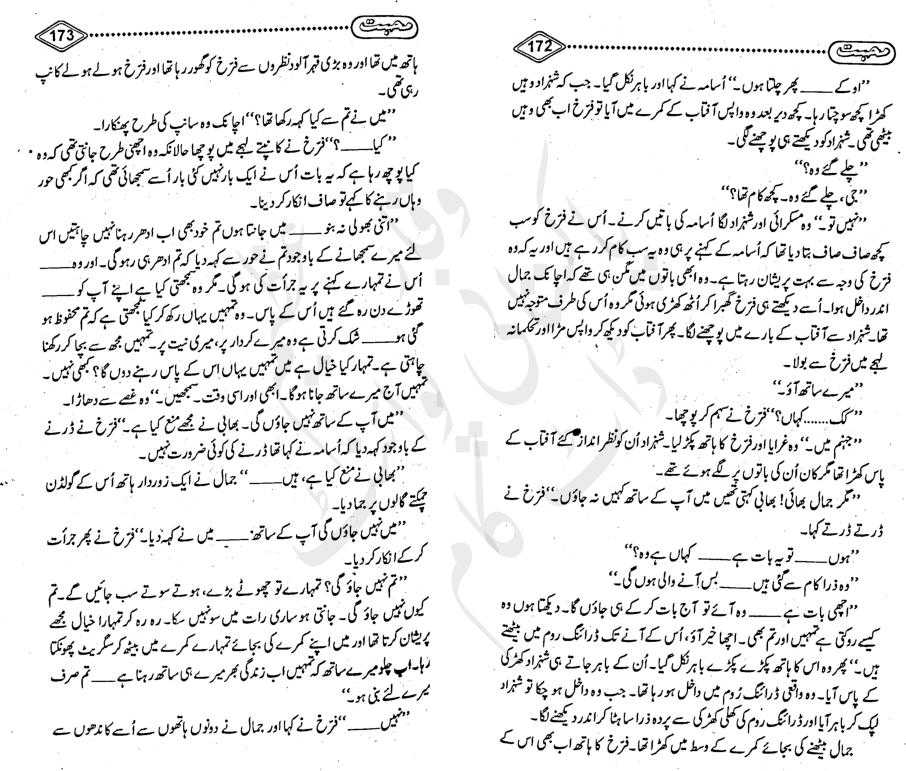 172 محبت
’’اوکے ــــــ پھر چلتا ہوں۔‘‘ اُسامہ نے کہا اور باہر نکل گیا۔ جب کہ شہزاد وہیں
کھڑا کچھ سوچتا رہا۔ کچھ دیر بعد وہ واپس آفتاب کے کمرے میں آیا تو فرّخ اب بھی وہیں
بیٹھی تھی۔ شہزاد کو دیکھتے ہی پوچھنے لگی۔
’’چلے گئے وہ؟‘‘
’’جی، چلے گئے وہ۔ کچھ کام تھا؟‘‘
’’نہیں تو۔‘‘ وہ مسکرائی اور شہزاد لگا اُسامہ کی باتیں کرنے۔ اُس نے فرّخ کو سب
کچھ صاف صاف بتا دیا تھا کہ اُسامہ کے کہنے پر ہی وہ یہ سب کام کر رہے ہیں اور یہ کہ وہ
فرّخ کی وجہ سے بہت پریشان رہتا ہے۔ وہ ابھی باتوں میں مگن ہی تھے کہ اچانک جمال
اندر داخل ہوا۔ اُسے دیکھتے ہی فرّخ گھبرا کر اُٹھ کھڑی ہوئی مگر وہ اُس کی طرف متوجہ نہیں
تھا۔ شہزاد سے آفتاب کے بارے میں پوچھنے لگا۔ پھر آفتاب کو دیکھ کر واپس مڑا اور تحکمانہ
لہجے میں فرّخ سے بولا۔
’’میرے ساتھ آؤ۔‘‘
’’کک.......کہاں؟‘‘ فرّخ نے سہم کر پوچھا۔
’’جہنم میں۔‘‘ وہ غرایا اور فرّخ کا ہاتھ پکڑ لیا۔ شہزاد اُن کو نظر انداز کئے آفتاب کے
پاس کھڑا تھا مگر کان اُن کی باتوں پر لگے ہوئے تھے۔
’’مگر جمال بھائی! بھابی کہتی تھیں میں آپ کے ساتھ کہیں نہ جاؤں۔‘‘ فرّخ نے
ڈرتے ڈرتے کہا۔
’’ہوں ــــــ تو یہ بات ہے ــــــ کہاں ہے وہ؟‘‘
’’وہ ذرا کام سے گئی ہیں ــــــ بس آنے والی ہوں گی۔‘‘
’’اچھی بات ہے ــــــ وہ آئے تو آج بات کر کے ہی جاؤں گا۔ دیکھتا ہوں وہ
کیسے روکتی ہے تمہیں اور تم بھی۔ اچھا خیر آؤ، اُس کے آنے تک ڈرائنگ روم میں بیٹھتے
ہیں۔‘‘ پھر وہ اس کا ہاتھ پکڑے پکڑے باہر نکل گیا۔ اُن کے باہر جاتے ہی شہزاد کھڑکی
کے پاس آیا۔ وہ واقعی ڈرائنگ رُوم میں داخل ہو رہا تھا۔ جب وہ داخل ہو چکا تو شہزاد
لپک کر باہر آیا اور ڈرائنگ روم کی کھلی کھڑکی سے پردہ ذرا سا ہٹا کر اندر دیکھنے لگا۔
جمال بیٹھنے کی بجائے کمرے کے وسط میں کھڑا تھا۔ فرّخ کا ہاتھ اب بھی اُس کے
173 محبت
ہاتھ میں تھا اور وہ بڑی قہر آلود نظروں سے فرّخ کو گھور رہا تھا اور فرّخ ہولے ہولے کانپ
رہی تھی۔
’’میں نے تم سے کیا کہہ رکھا تھا؟‘‘ اچانک وہ سانپ کی طرح پھنکارا۔
’’کیا ــــــ؟‘‘ فرّخ نے کانپتے لہجے میں پوچھا حالانکہ وہ اچھی طرح جانتی تھی کہ وہ
کیا پوچھ رہا ہے کہ یہ بات اُس نے ایک بار نہیں کئی بار اُسے سمجھائی تھی کہ اگر کبھی حور
وہاں رہنے کا کہے تو صاف انکار کر دینا۔
’’اتنی بھولی نہ بنو ــــــ میں جانتا ہوں تم خود بھی اب ادھر رہنا نہیں چاہتیں اس
لئے میرے سمجھانے کے باوجود تم نے حور سے کہہ دیا کہ تم ادھر ہی رہو گی۔ اور وہ ــــــ
اُس نے تمہارے کہنے پر یہ جرأت کی ہو گی۔ مگر وہ سمجھتی کیا ہے اپنے آپ کو ــــــ
تھوڑے دن رہ گئے ہیں اُس کے پاس۔ وہ تمہیں یہاں رکھ کر کیا سمجھتی ہے کہ تم محفوظ ہو
گئی ہو ــــــ شک کرتی ہے وہ میرے کردار پر، میری نیت پر۔ تمہیں مجھ سے بچا کر رکھنا
چاہتی ہے۔ تمہارا کیا خیال ہے میں تمہیں یہاں اس کے پاس رہنے دوں گا؟ کبھی نہیں۔
تمہیں آج میرے ساتھ جانا ہو گا۔ ابھی اور اسی وقت۔ سمجھیں۔‘‘ وہ غصے سے دھاڑا۔
’’میں آپ کے ساتھ نہیں جاؤں گی۔ بھابی نے مجھے منع کیا ہے۔‘‘ فرّخ نے ڈرنے
کے باوجود کہہ دیا کہ اُسامہ نے کہا تھا ڈرنے کی کوئی ضرورت نہیں۔
’’بھابی نے منع کیا ہے، ہیں ــــــ‘‘ جمال نے ایک زوردار ہاتھ اُس کے گولڈن
چمکتے گالوں پر جما دیا۔
’’میں نہیں جاؤں گی آپ کے ساتھ: ــــــ میں نے کہہ دیا۔‘‘ فرّخ نے پھر جرأت
کر کے انکار کر دیا۔
’’تم نہیں جاؤ گی؟ تمہارے تو چھوٹے بڑے، ہوتے سوتے سب جائیں گے۔ تم
کیوں نہیں جاؤ گی۔ جانتی ہو ساری رات میں سو نہیں سکا۔ رہ رہ کر تمہارا خیال مجھے
پریشان کرتا تھا اور میں اپنے کمرے کی بجائے تمہارے کمرے میں بیٹھ کر سگریٹ پھونکتا
رہا۔ اب چلو میرے ساتھ کہ تمہیں اب زندگی بھر میرے ہی ساتھ رہنا ہے ــــــ تم صرف
میرے لئے بنی ہو۔‘‘
’’نہیں ــــــ‘‘ فرّخ نے کہا اور جمال نے دونوں ہاتھوں سے اُسے کاندھوں سے